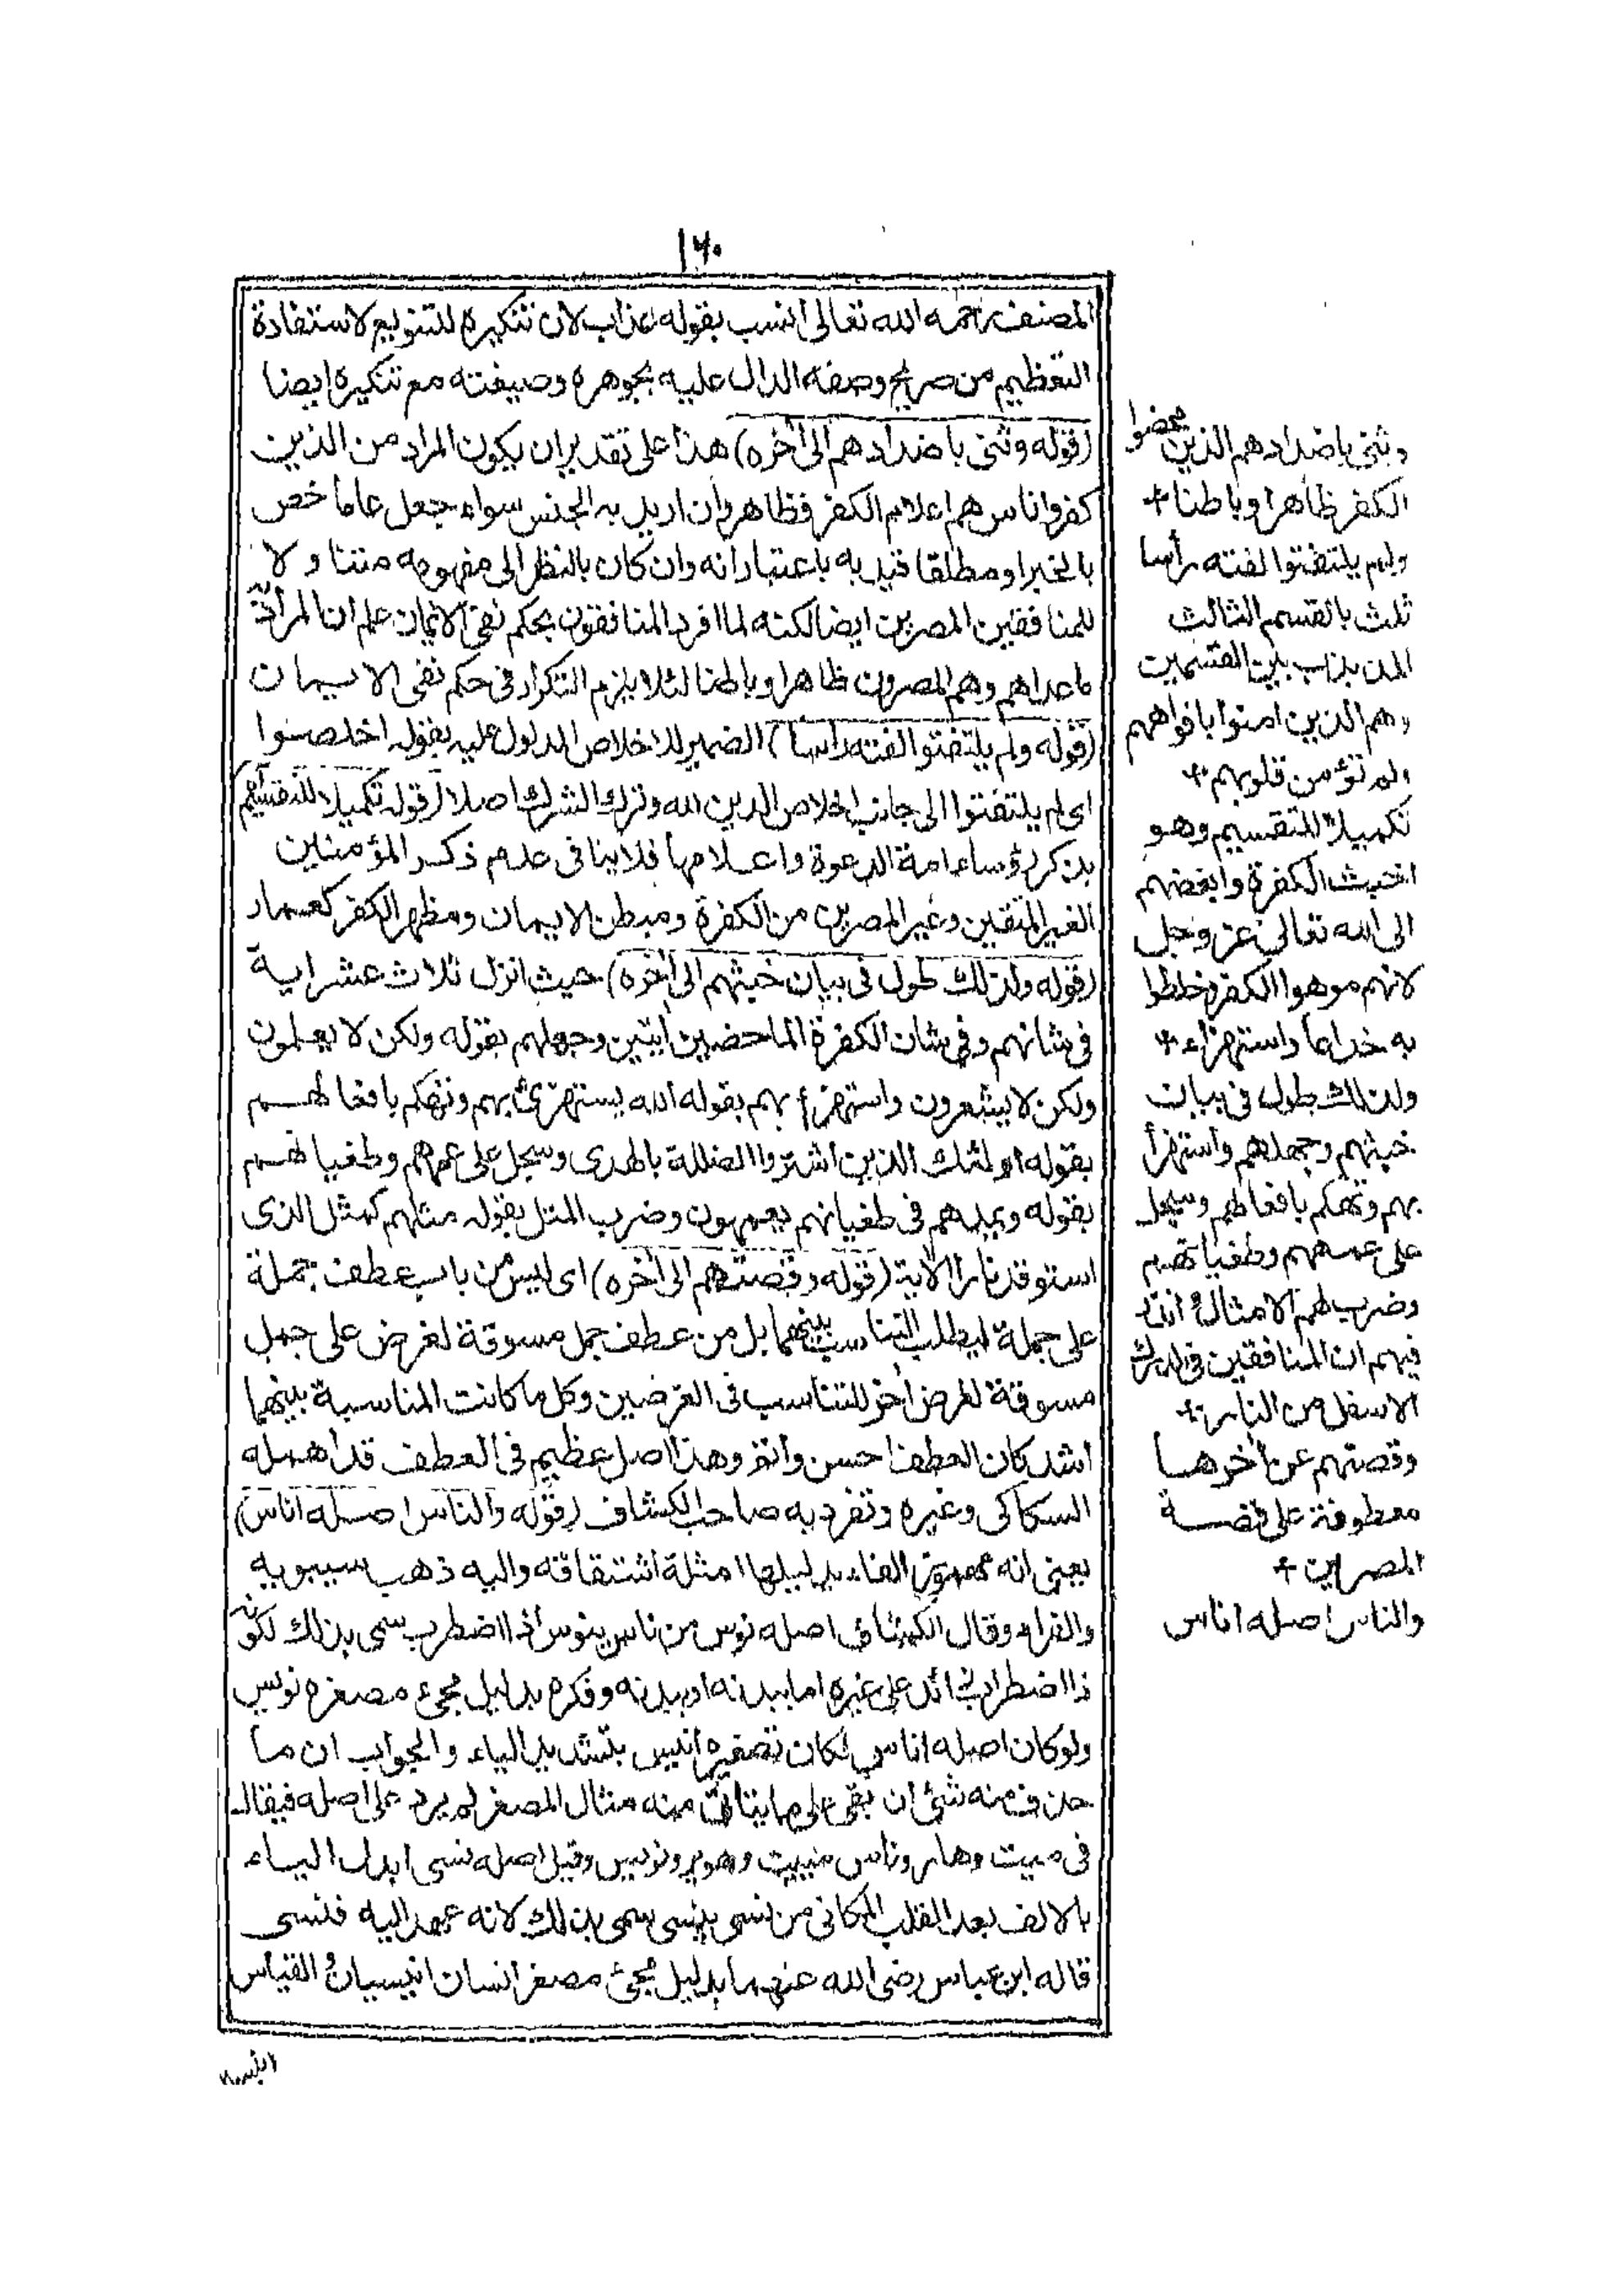 ١٦٠
المصنف رحمه الله تعالى انسب بقوله عذاب لان تنكيره للتنويع لاستفادة
التعظيم من صريح وصفه الدال عليه بجوهره وصيغته مع تنكيره ايضا
(قوله وثنى باضدادهم الى آخره) هذا على تقدير ان يكون المراد من الذين
كفروا ناس هم اعلام الكفر فظاهر وان اريد به الجنس سواء جعل عاما خص
بالخبر او مطلقا قيد به باعتبار انه وان كان بالنظر الى مفهومه متناولا
للمنافقين المصرين ايضا لكنه لما افرد المنافقون بحكم نفى الايمان علم ان المراد
ما عداهم وهم المصرون ظاهرا وباطنا لئلا يلزم التكرار فى حكم نفى الايمان
(قوله ولم يلتفتوا لفته رأسا) الضمير للاخلاص المدلول عليه بقوله اخلصوا
اى لم يلتفتوا الى جانب اخلاص الدين لله وترك الشرك اصلا (قوله تكميلا للتقسيم)
بذكر رؤساء امة الدعوة واعلامها فلا ينافى عدم ذكر المؤمنين
الغير المتقين وغير المصرين من الكفرة ومبطن الايمان ومظهر الكفر كعمار
(قوله ولذلك طول فى بيان خبثهم الى آخره) حيث انزل ثلاث عشر اية
فى شانهم وفى شان الكفرة الماحضين آيتين وجهلهم بقوله ولكن لا يعلمون
ولكن لا يشعرون واستهزأ بهم بقوله الله يستهزئ بهم وتهكم بافعالهم
بقوله اولئك الذين اشتروا الضللة بالهدى وسجل على عمههم وطغيانهم
بقوله ويمدهم فى طغيانهم يعمهون وضرب المثل بقوله مثلهم كمثل الذى
استوقد نارا الاية (قوله وقصتهم الى آخره) اى ليس من باب عطف جملة
على جملة ليطلب التناسب بينهما بل من عطف جمل مسوقة لغرض على جمل
مسوقة لغرض آخر للتناسب فى الغرضين وكل ما كانت المناسبة بينهما
اشد كان العطف احسن واتم وهذا اصل عظيم فى العطف قد اهمله
السكاكى وغيره وتفرد به صاحب الكشاف (قوله والناس اصله اناس)
يعنى انه مهموز الفاء بدليل امثلة اشتقاقه واليه ذهب سيبويه
والفراء وقال الكسائى اصله نوس من ناس ينوس اذا اضطرب سمى بذلك لكونه
ذا اضطراب زائد على غيره اما ببدنه او بيدنه وفكره بدليل مجئ مصغره نويس
ولو كان اصله اناس لكان تصغيره انيس بتشديد الياء والجواب ان ما
حذف منه شئ ان بقى على ما يتاتى منه مثال المصغر لم يرد على اصله فيقال
فى ميت وهار وناس مييت وهوير ونويس وقيل اصله نسى ابدل الياء
بالالف بعد القلب المكانى من نسى ينسى سمى بذلك لانه عهد اليه فنسى
قاله ابن عباس رضى الله عنهما بدليل مجئ مصغر انسان انيسيان والقياس
وثنى باضدادهم الذين محضوا
الكفر ظاهرا وباطنا +
ولم يلتفتوا لفته رأسا
ثلث بالقسم الثالث
المذبذب بين القسمين
وهم الذين امنوا بافواههم
ولم تؤمن قلوبهم +
تكميلا للتقسيم وهو
اخبث الكفرة وابغضهم
الى الله تعالى عز وجل
لانهم موهوا الكفر وخلطوا
به خداعا واستهزاء +
ولذلك طول فى بيان
خبثهم وجهلهم واستهزأ
بهم وتهكم بافعالهم وسجل
على عمههم وطغيانهم
وضرب لهم الامثال وانزل
فيهم ان المنافقين فى الدرك
الاسفل من النار +
وقصتهم عن آخرها
معطوفة على قصة
المصرين +
والناس اصله اناس